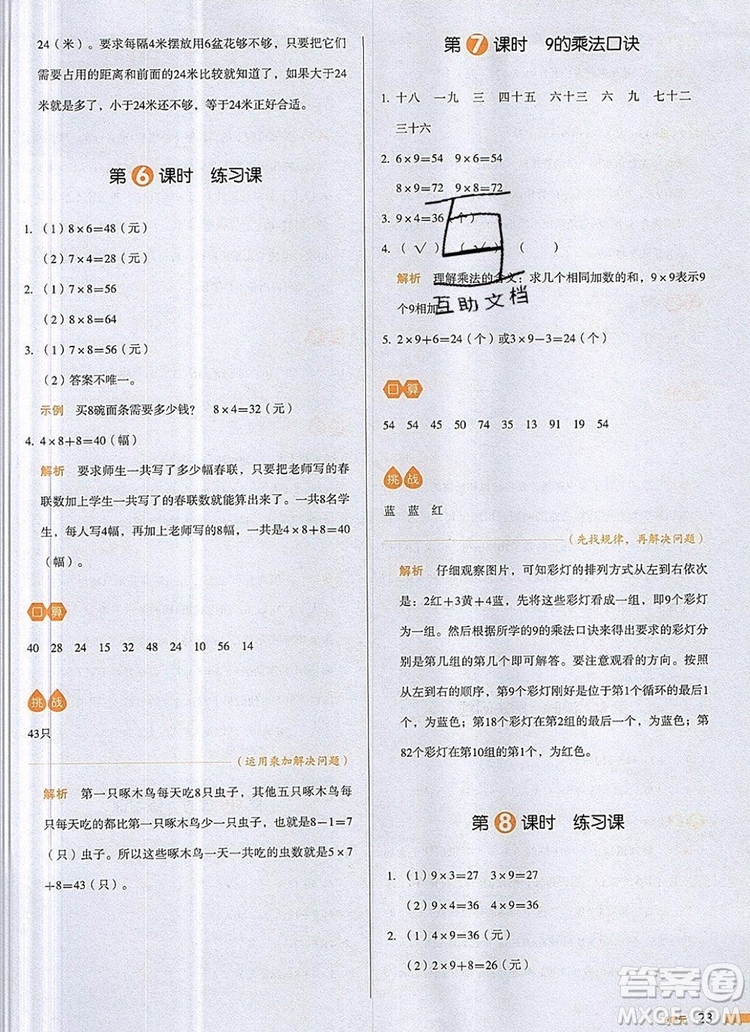 24（米）。要求每隔4米摆放用6盆花够不够，只要把它们
需要占用的距离和前面的24米比较就知道了，大于24
米就是多了，小于24米还不够，等于24米正好合适。
第6课时 练习课
1.（1）8×6=48（元）
（2）7×4=28（元）
2.（1）7×8=56
（2）8×8=64
3.（1）7×8=56（元）
（2）答案不唯一。
示例 买8碗面条需要多少钱？ 8×4=32（元）
4. 4×8+8=40（幅）
解析 要求师生一共写了多少幅春联，只要把老师写的春
联数加上学生一共写的春联数就能算出来了。一共8名学
生，每人写4幅，再加上老师写的8幅，一共是4×8+8=40
（幅）。
口算
40 28 24 15 32 48 24 10 56 14
挑战
43只
（运用乘加解决问题）
解析 第一只啄木鸟每天吃8只虫子，其他五只啄木鸟
每只每天吃的都比第一只啄木鸟少1只，就是8-1=7
（只）虫子。所以这些啄木鸟一天一共吃的虫数是5×7
+8=43（只）。
第7课时 9的乘法口诀
1. 十八 一九 三 四十五 六十三 六 九 七十二
三十六
2. 6×9=54 9×6=54
8×9=72 9×8=72
3. 9×4=36（个）
4.（√） （√） （ ）
解析 理解乘法的含义：求几个相同加数的和，9×9表示9
个9相加
5. 2×9+6=24（个）或3×9-3=24（个）
互助文档
口算
54 54 45 50 74 35 13 91 19 54
挑战
蓝 蓝 红
（先找规律，再解决问题）
解析 仔细观察图片，可知彩灯的排列方式从左到右依次
是：2红+3黄+4蓝，先按这些彩灯看成一组，即9个彩灯
为一组。然后根据所学的9的乘法口诀得出要求的彩灯分
别是第几组的第几个即可解答。要注意观看的方向。按照
从左到右的顺序，第9个彩灯刚好是位于第1个循环的最后
一个，为蓝色；第18个彩灯在第2组的最后一个，为蓝色；第
82个彩灯在第10组的第1个，为红色。
第8课时 练习课
1.（1）9×3=27 3×9=27
（2）9×4=36 4×9=36
2.（1）4×9=36（元）
（2）2×9+8=26（元）
23
答案圈
MXQE.COM